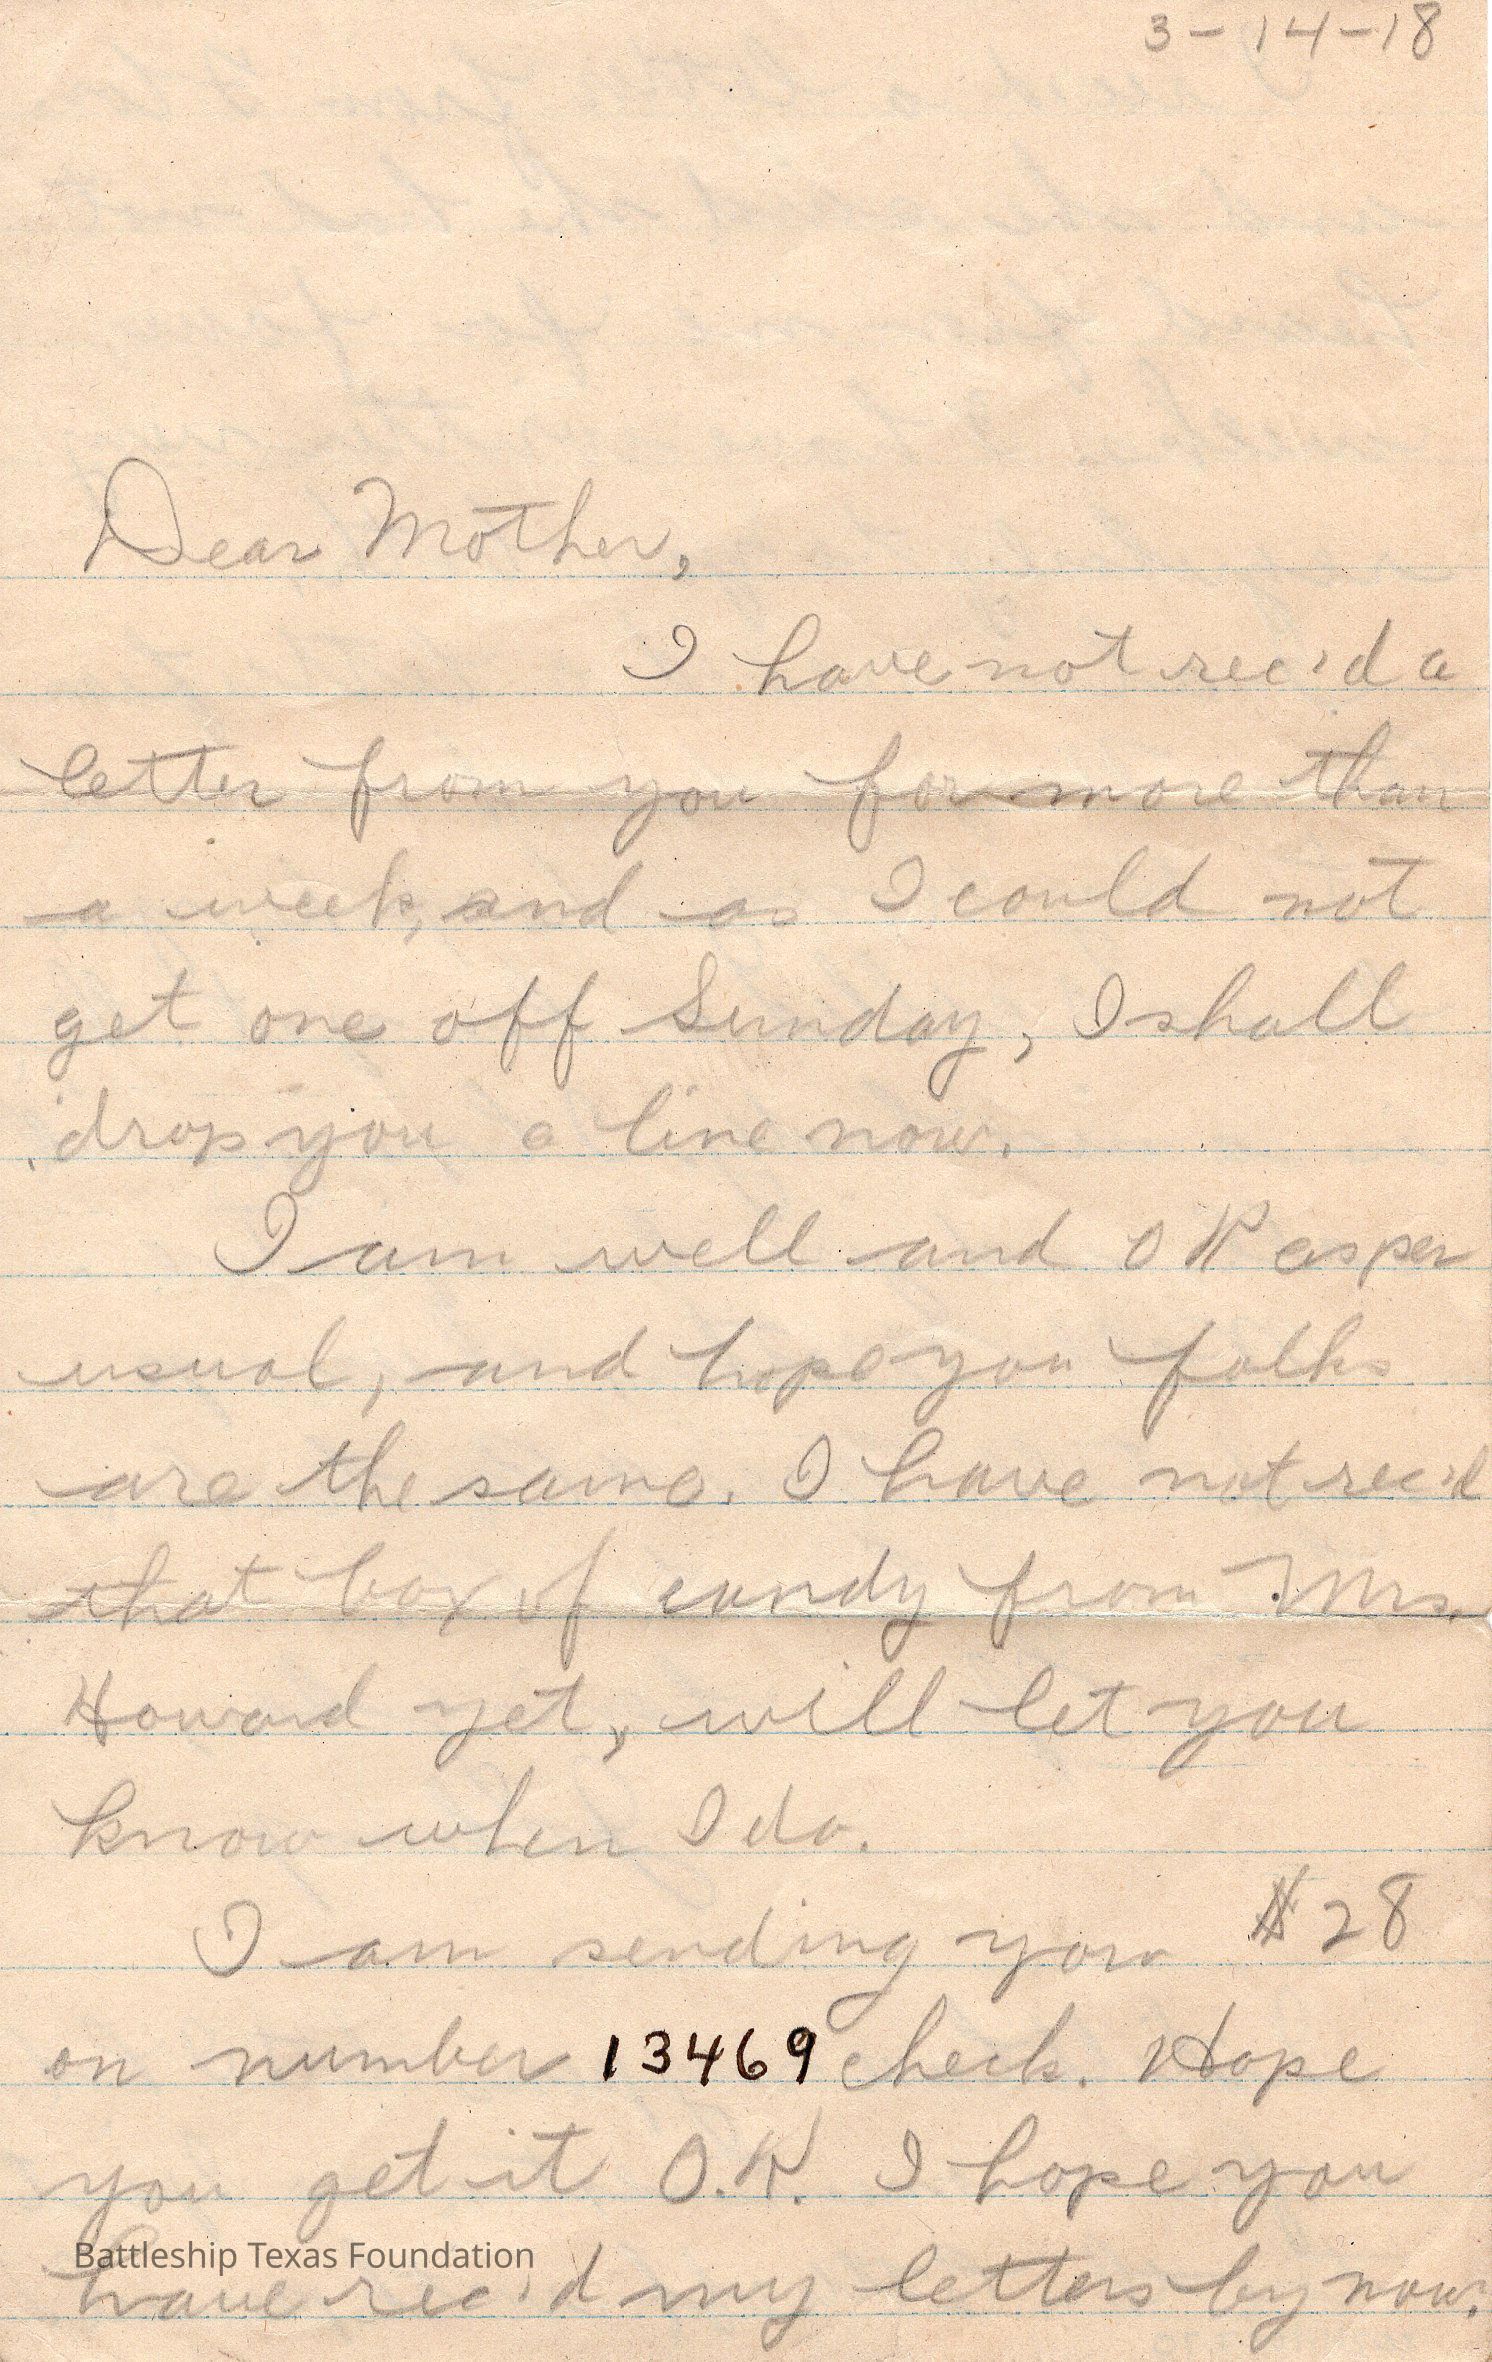 3-14-18
Dear Mother,
I have not rec'd a
letter from you for more than
a week, and as I could not
get one off Sunday, I shall
drop you a line now.
I am well and OK as per
usual, and hope you folks
are the same. I have not rec'd
that box of candy from Mrs.
Howard yet, will let you
know when I do.
I am sending you $28
on number 13469 check. Hope
you get it O.K. I hope you
Battleship Texas Foundation
have rec'd my letters by now.